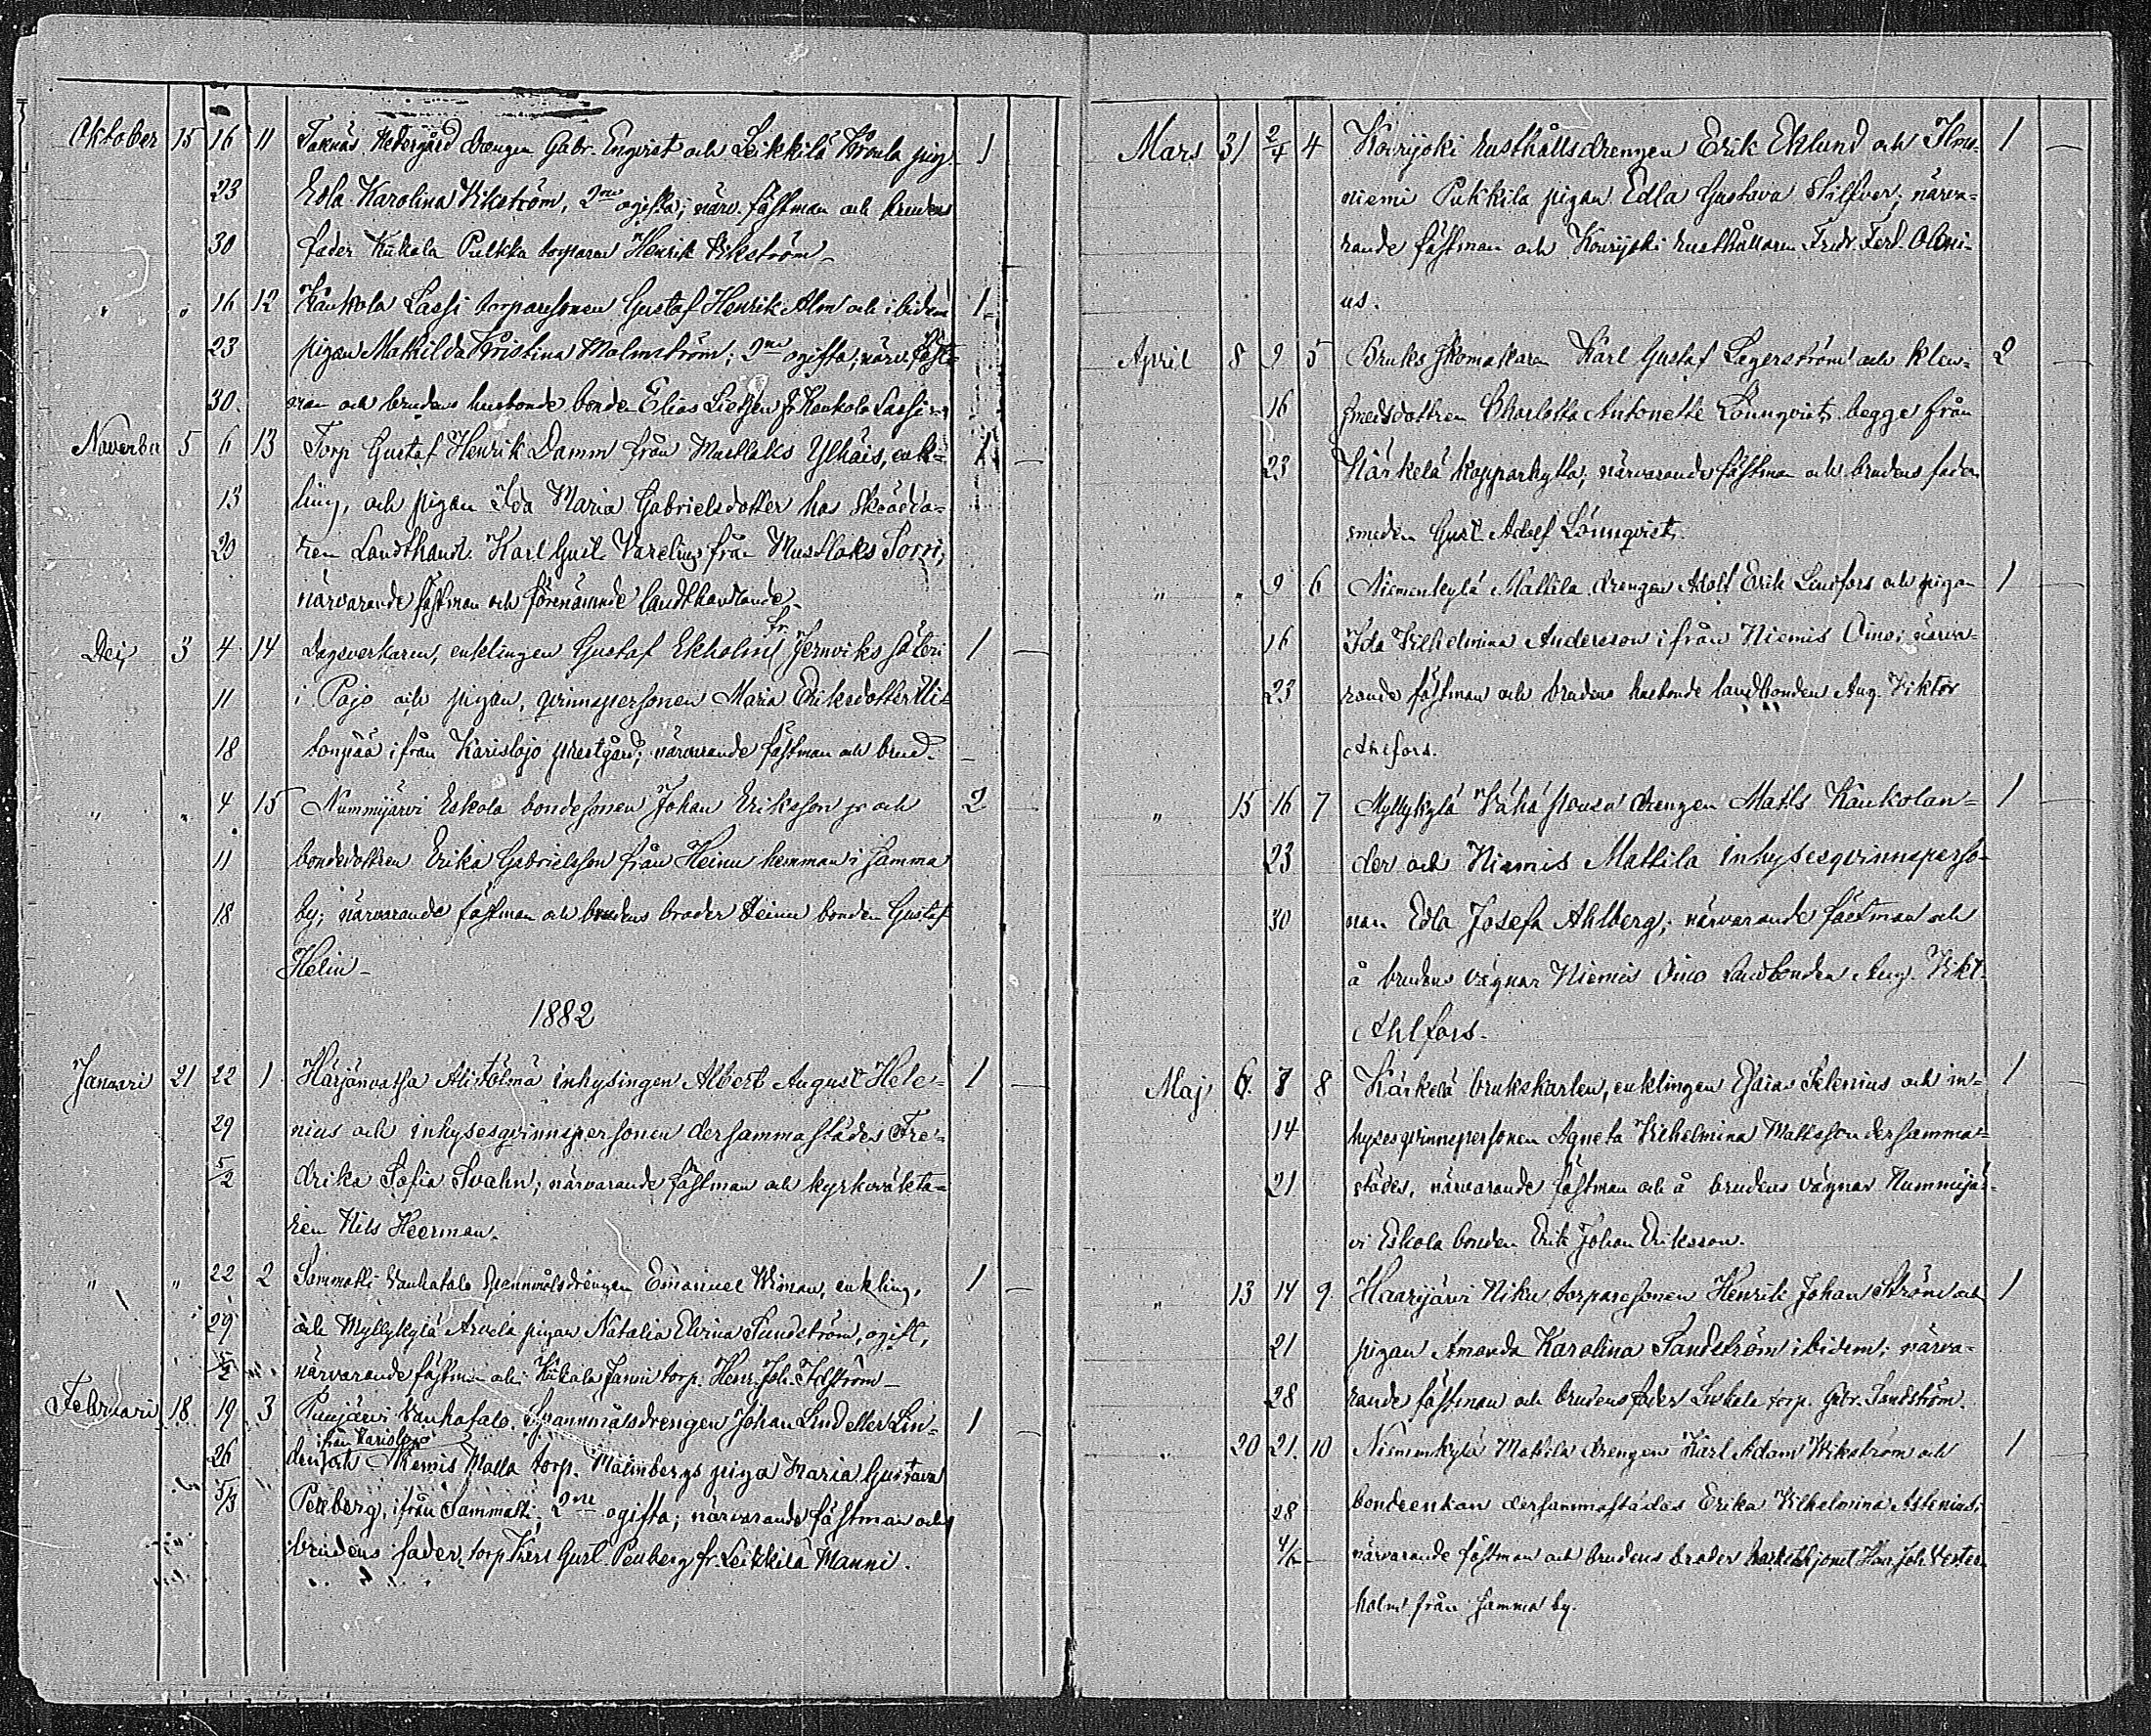 Oktober 15 16 11 Saknäs Nedergård drengen Gabr. Enqvist och Leikkilä Kroula pig. 1
23 Edla Karolina Vikström, 2ne ogifta; närv. fästman och brudens
30 fader Kukola Pulkka torparen Henrik Vikström
" " 16 12 Kaukola Lassi torparesonen Gustaf Henrik Alm och ibidem 1
23 pigan Mathilda Kristina Malmström; 2ne ogifta; närv. fäst-
30. man och brudens husbonde bonden Elias fr Kaukola Lassi
November 5 6 13 Torp Gustaf Henrik Damm från Mustlaks Ylhäis, enk- 1
13 ling, och pigan Ida Maria Gabrielsdotter hos
20 ren Landthand. Karl Gust. Varelius från Mustlaks Sorri,
närvarande fästman och förenämnde landthandlande
Dec 3 4 14 Dagsverkaren, enklingen Gustaf Ekholm fr Jernviks säteri 1
11 i Pojo och pigan, qvinnspersonen Maria Eriksdotter Ui-
18 tonpää ifrån Karislojo prestgård; närvarande fästman och brud.
" " 4 15 Nummijärvi Eskola bondesonen Johan Eriksson jr och 2
11 bondedottren Erika Gabrielsson från Heinu hemman i samma
18 by; närvarande fästman och brudens broder Heinu bonden Gustaf
Helin
1882
Januari 21 22 1 Härjänvatsa Alistölmä inhysingen Albert August Hele- 1
29 nius och inhysesqvinnspersonen dersammastädes Fre-
5/2 drika Sofia Svahn; närvarande fästman och kyrkoväkta-
ren Nils Heerman.
" " 22 2 Sammatti Vanhatalo spannmålsdrengen Emanuel Wiman, enkling, 1
29 och Myllykylä Arvela pigan Natalia Elvina Sundström, ogift,
5/2 närvarande fästman och Kukola Janni torp. Henr. Joh.
Februari 18 19 3 Puujärvi Vanhatalo Spannmålsdrengen Johan Lind eller Lin- 1
från Karislojo
26 den och Niemis Malla torp. Malmbergs piga Maria Gustava
5/3 Penberg, ifrån Sammatti; 2ne ogifta; närvarande fästman och
brudens fader, torp Gust. Penberg fr. Leikkilä Manni.
Mars 31 2/4 4 Koirijoki rusthållsdrengen Erik Eklund och Ilmo- 1
niemi Pukkila pigan Edla Gustava Silfver; närva-
rande fästman och Koirijoki rusthållaren Fredr. Ferd. Oloni-
us.
April 8 9 5 Bruks skomakaren Karl Gustaf Lagerström och klen- 2
16 smedsdottren Charlotta Antonette Lönnqvist, begge från
23 Kärkelä kopparhytta, närvarande fästman och brudens fader
smeden Gust. Adolf Lönnqvist.
" " 9 6 Niemenkylä Mattila drengen Adolf Erik Lindfors och pigan 1
16 Ida Vilhelmina Andersson ifrån Niemis Oino; närva-
23 rande fästman och brudens husbonde landbonden Aug. Viktor
Ahlfors.
" 15 16 7 Myllykylä Vähä drengen Matts Kaukolan- 1
23 der och Niemis Mattila inhysesqvinnsperso-
30 nan Edla Josefa Ahlberg; närvarande fästman och
å brudens vägnar Niemis Oino landbonden Aug. Vikt.
Ahlfors.
Maj 6. 7 8 Kärkelä brukskarlen, enklingen Esaias Selenius och in- 1
14 hysesqvinnspersonen Agneta Vilhelmina Mattsson dersamma-
21 städes, närvarande fästman och å brudens vägnar Nummijär-
vi Eskola bonden Erik Johan Eriksson.
" 13 14 9. Haarijärvi Niku torparesonen Henrik Johan Ström och 1
21 pigan Amanda Karolina Sandström ibidem; närva-
28 rande fästman och brudens fader torp. Gabr. Sandström.
" 20 21. 10 Niemenkylä Mattila drengen Karl Adam Wikström och 1
28 bondeenkan dersammastädes Erika Vilhelmina Astenius;
4/6 närvarande fästman och brudens broder Henr. Joh. Vester-
holm från samma by.